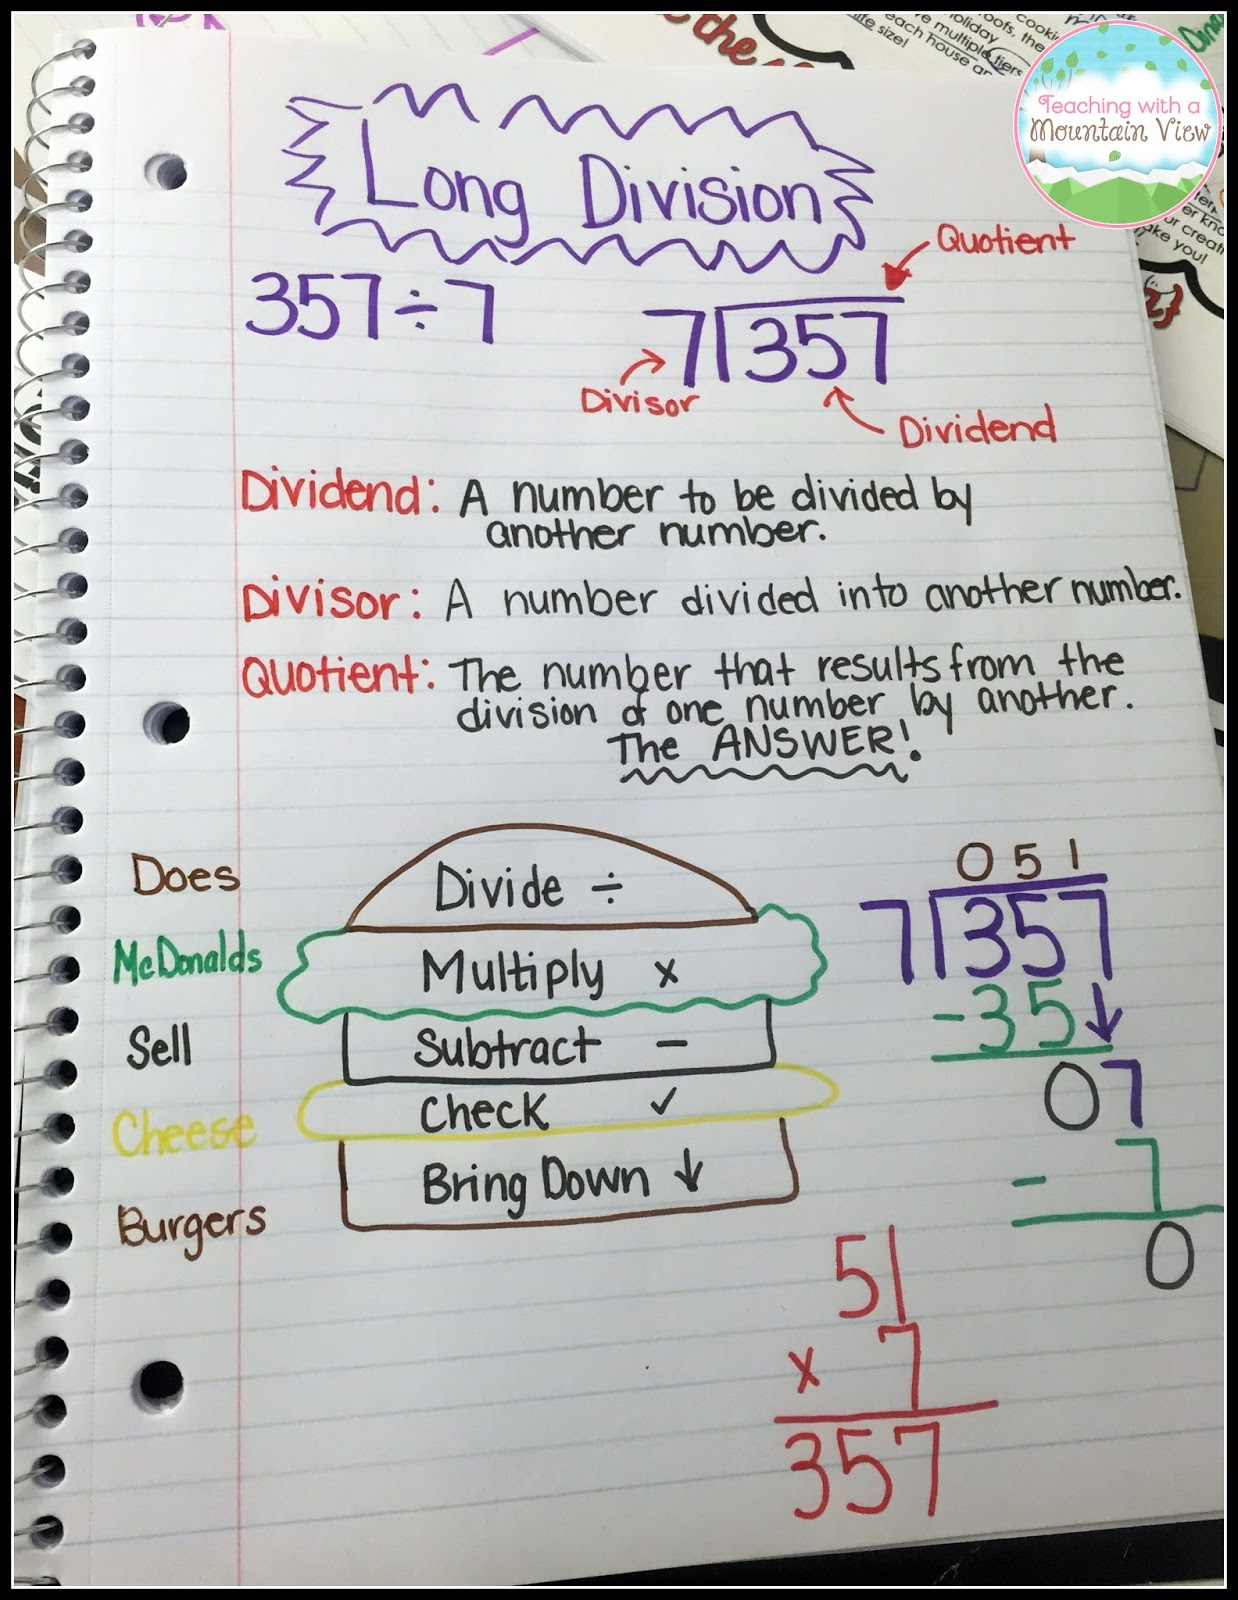 the
life size!
each house
multiple tiers
holiday
Teaching with a
Mountain View
Long Division
Quotient
357÷7
7 357
Divisor
Dividend
Dividend: A number to be divided by
another number.
Divisor: A number divided into another number.
Quotient: The number that results from the
division of one number by another.
The ANSWER!
Does
Divide ÷
McDonalds
Multiply x
Sell
Subtract −
Cheese
Check ✓
Burgers
Bring Down ↓
051
7 357
-35↓
07
- 7
0
51
x 7
357